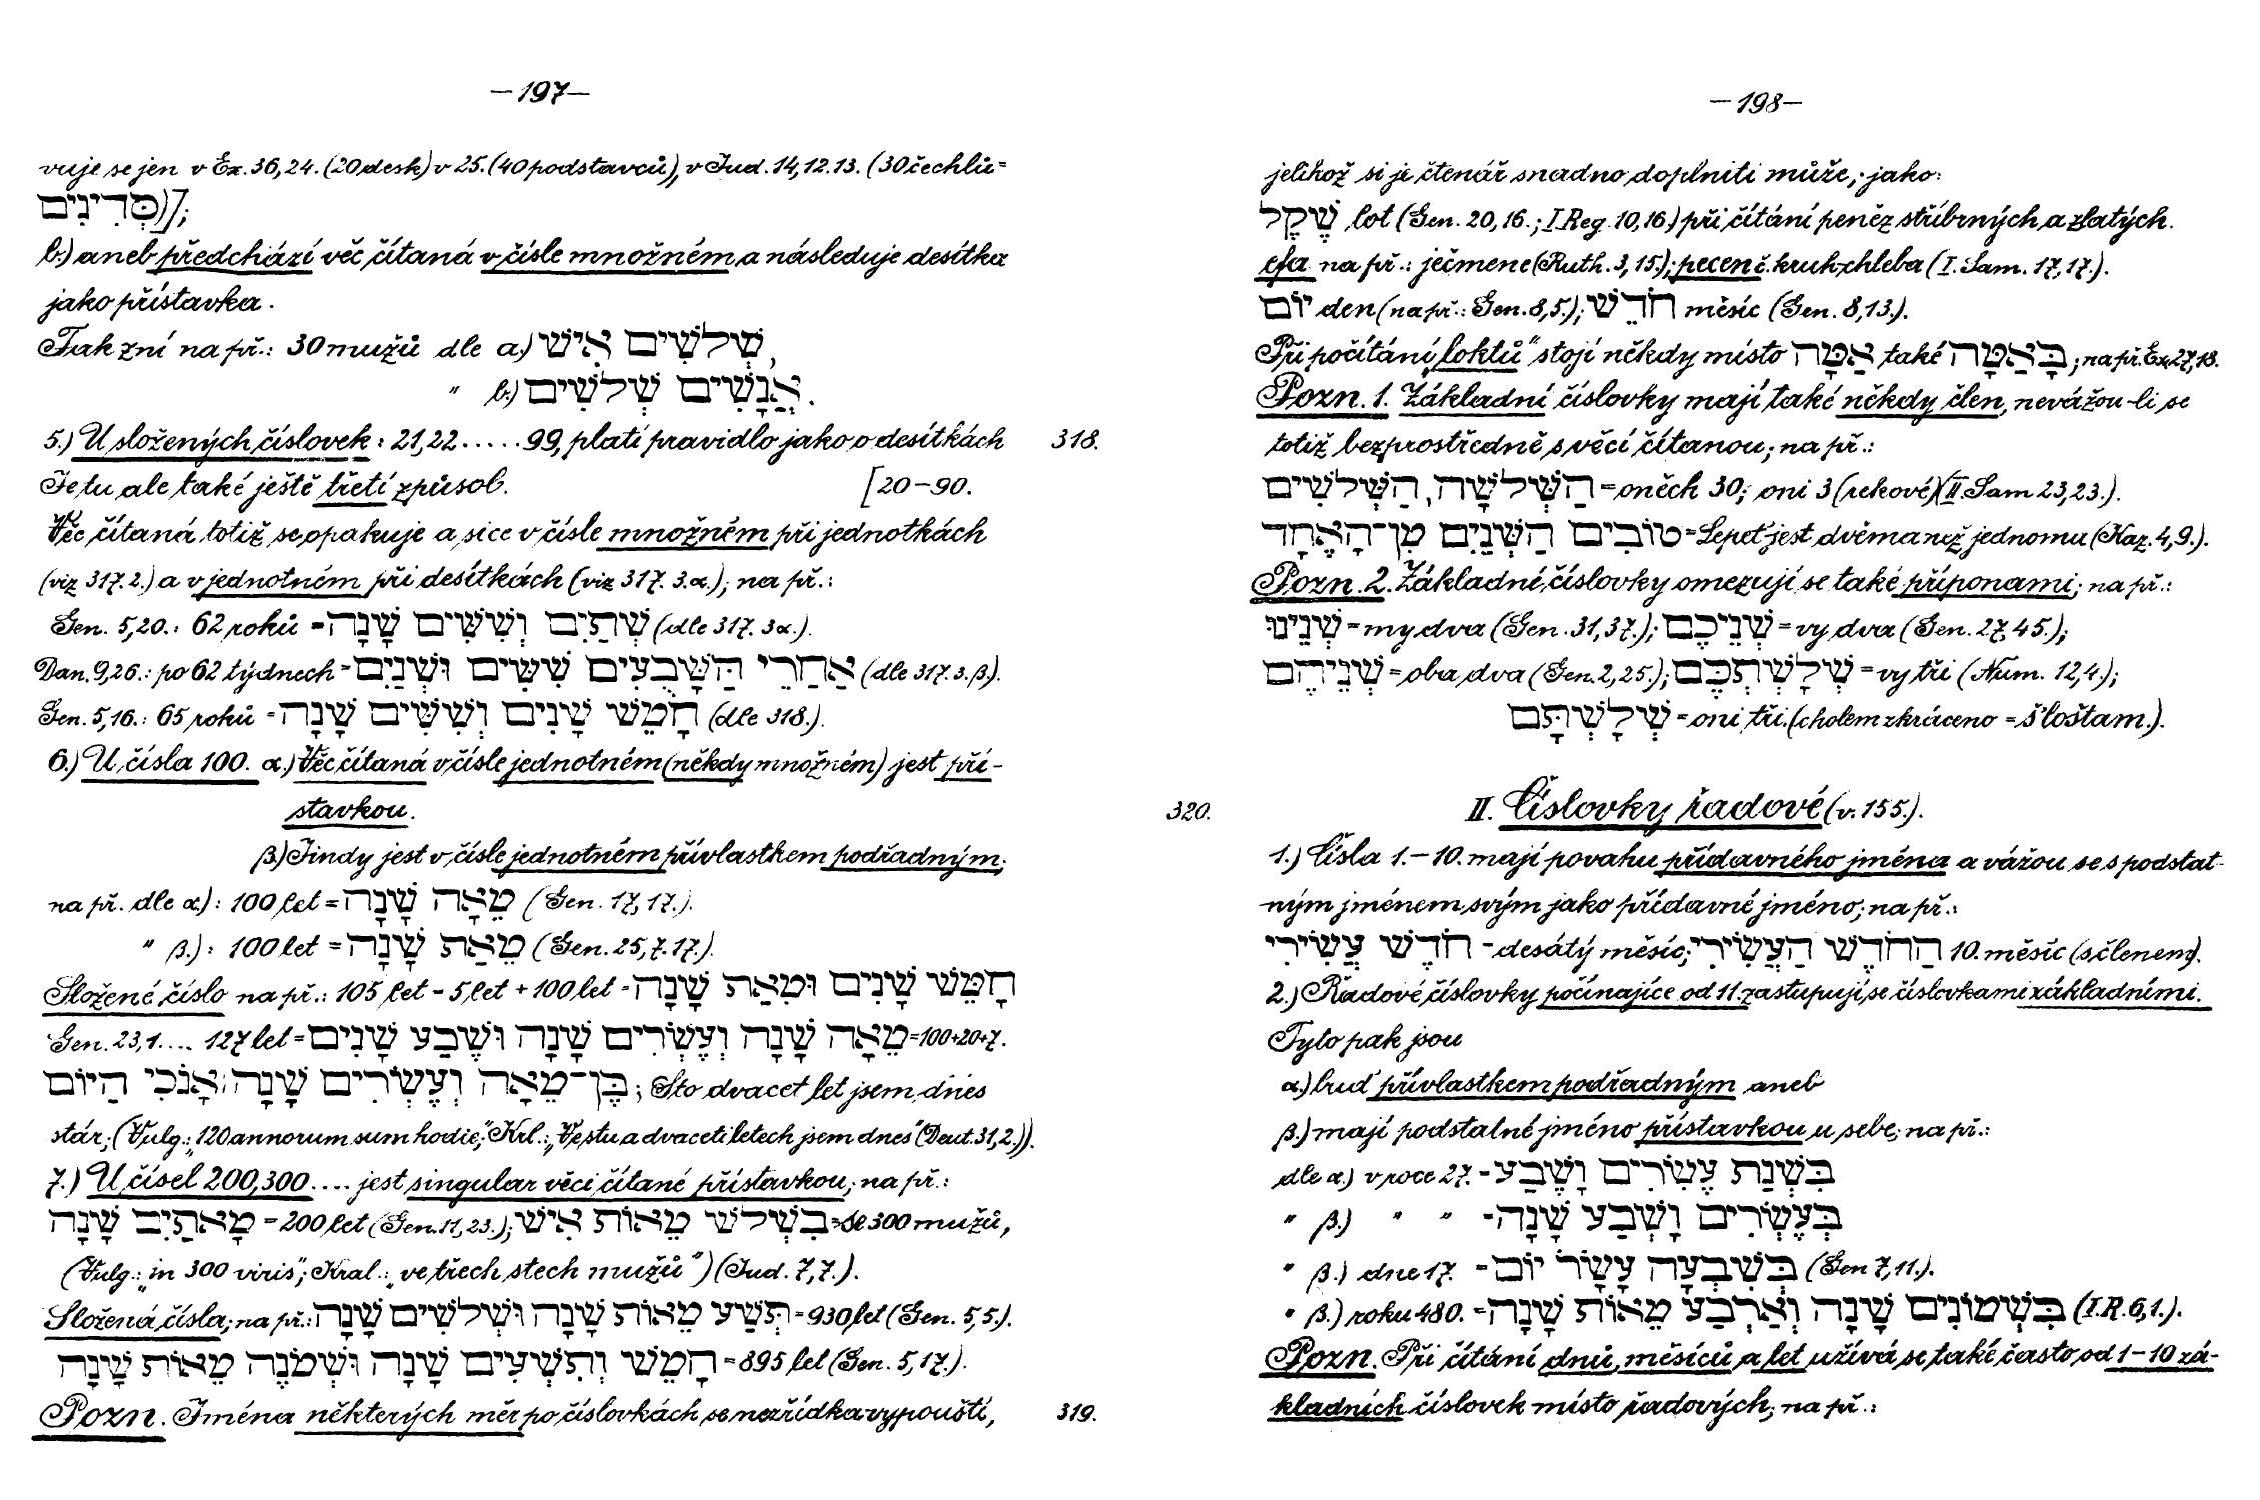 —197—
vuje se jen v Ex. 36,24. (20 desk) v 25. (40 podstavců), v Jud. 14,12.13. (30 čechlů=
סְדִינִים)];
b.) aneb předchází věc čítaná v čísle množném a následuje desítka
jako přístavka.
Tak zní na př.: 30 mužů dle a.) שְׁלשִׁים אִישׁ,
" b.) אֲנָשִׁים שְׁלשִׁים.
5.) U složených číslovek: 21,22.....99, platí pravidlo jako o desítkách 318.
Je tu ale také ještě třetí způsob. [20—90.
Věc čítaná totiž se opakuje a sice v čísle množném při jednotkách
(viz 317. 2.) a v jednotném při desítkách (viz 317. 3.α.); na př.:
Gen. 5,20.: 62 roků = שְׁתַּיִם וְשִׁשִּׁים שָׁנָה (dle 317. 3α.).
Dan. 9,26.: po 62 týdnech = אַחֲרֵי הַשָּׁבֻעִים שִׁשִּׁים וּשְׁנַיִם (dle 317. 3. β.).
Gen. 5,16.: 65 roků = חָמֵשׁ שָׁנִים וְשִׁשִּׁים שָׁנָה (dle 318.).
6.) U čísla 100. α.) Věc čítaná v čísle jednotném (někdy množném) jest pří-
stavkou.
β.) Jindy jest v čísle jednotném přívlastkem podřadným;
na př. dle α.): 100 let = מֵאָה שָׁנָה (Gen. 17,17.).
" β.): 100 let = מֵאַת שָׁנָה (Gen. 25,7.17.).
Složené číslo na př.: 105 let - 5 let + 100 let - חָמֵשׁ שָׁנִים וּמְאַת שָׁנָה
Gen. 23,1.... 127 let = מֵאָה שָׁנָה וְעֶשְׂרִים שָׁנָה וְשֶׁבַע שָׁנִים = 100+20+7.
בֶּן־מֵאָה וְעֶשְׂרִים שָׁנָה אָנֹכִי הַיּוֹם; Sto dvacet let jsem dnes
stár; (Vulg.: „120 annorum sum hodie;" Krl.: „Ve stu a dvaceti letech jsem dnes" (Deut. 31,2.)).
7.) U čísel 200,300.... jest singular věci čítané přístavkou; na př.:
מָאתַיִם שָׁנָה = 200 let (Gen. 11,23.); בִּשְׁלשׁ מֵאוֹת אִישׁ = se 300 mužů,
(Vulg.: „in 300 viris"; Kral.: „ve třech stech mužů") (Jud. 7,7.).
Složená čísla; na př.: תְּשַׁע מֵאוֹת שָׁנָה וּשְׁלשִׁים שָׁנָה = 930 let (Gen. 5,5.).
חָמֵשׁ וְתִשְׁעִים שָׁנָה וּשְׁמֹנֶה מֵאוֹת שָׁנָה = 895 let (Gen. 5,17.).
Pozn. Jména některých měr po číslovkách se nezřídka vypouští, 319.
—198—
jelikož si je čtenář snadno doplniti může; jako:
שֶׁקֶל lot (Gen. 20,16.; I Reg. 10,16) při čítání peněz stříbrných a zlatých.
efa na př.: ječmene (Ruth. 3,15.); pecen č. kruh chleba (I. Sam. 17,17.).
יוֹם den (na př.: Gen. 8,5.); חֹדֶשׁ měsíc (Gen. 8,13.).
Při počítání „loktů" stojí někdy místo אַמָּה také בָּאַמָּה; na př. Ex. 27,18.
Pozn. 1. Základní číslovky mají také někdy člen, nevážou-li se
totiž bezprostředně s věcí čítanou; na př.:
הַשְּׁלשָׁה, הַשְּׁלשִׁים = oněch 30; oni 3 (rekové) (II. Sam 23,23.).
טוֹבִים הַשְּׁנַיִם מִן־הָאֶחָד = Lepeť jest dvěma než jednomu (Kaz. 4,9.).
Pozn. 2. Základní číslovky omezují se také příponami; na př.:
שְׁנֵינוּ = my dva (Gen. 31,37.); שְׁנֵיכֶם = vy dva (Gen. 27,45.);
שְׁנֵיהֶם = oba dva (Gen. 2,25.); שְׁלָשְׁתְּכֶם = vy tři (Num. 12,4.);
שְׁלָשְׁתָּם = oni tři. (cholem zkráceno = šloštam.).
320. II. Číslovky řadové (v. 155.).
1.) Čísla 1.—10. mají povahu přídavného jména a vážou se s podstat-
ným jménem svým jako přídavné jméno; na př.:
חֹדֶשׁ עֲשִׂירִי - desátý měsíc; הַחֹדֶשׁ הָעֲשִׂירִי 10. měsíc (s členem).
2.) Řadové číslovky počínajíce od 11. zastupují se číslovkami základními.
Tyto pak jsou
α.) buď přívlastkem podřadným aneb
β.) mají podstatné jméno přístavkou u sebe; na př.:
dle α.) v roce 27. - בִּשְׁנַת עֶשְׂרִים וָשֶׁבַע
" β.) " " - בְּעֶשְׂרִים וָשֶׁבַע שָׁנָה
" β.) dne 17. = בְּשִׁבְעָה עָשָׂר יוֹם (Gen 7,11.).
" β.) roku 480. = בִּשְׁמוֹנִים שָׁנָה וְאַרְבַּע מֵאוֹת שָׁנָה (I. R. 6,1.).
Pozn. Při čítání dnů, měsíců a let užívá se také často od 1—10 zá-
kladních číslovek místo řadových; na př.: